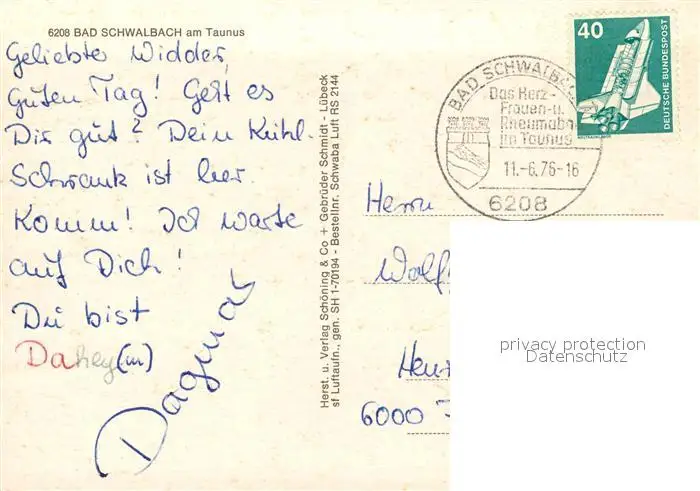 6208 BAD SCHWALBACH am Taunus
Geliebter Widder,
Guten Tag! Geht es
Dir gut? Dein Kühl-
Schrank ist hier
Komm! Ich warte
auf Dich!
Du bist
Dahey(m)
Dagmar
Herst. u. Verlag Schöning & Co + Gebrüder Schmidt - Lübeck
sf Luftaufn., gen. SH 1-70194 - Bestellnr. Schwaba Luft RS 2144
40
DEUTSCHE BUNDESPOST
BAD SCHWALB
Das Herz-
Frauen-u.
Rheumabad
im Taunus
11.-6.76-16
6208
Herrn
Wolf
6000
privacy protection
Datenschutz